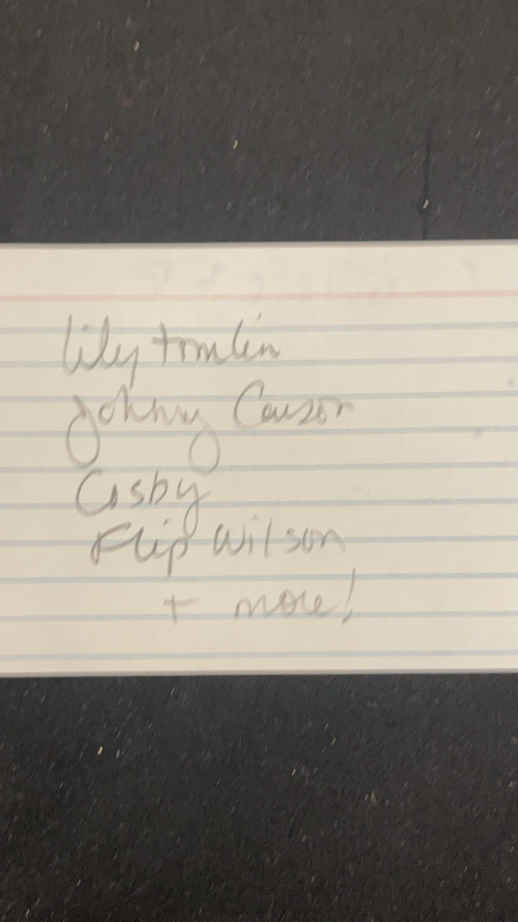 lily tomlin
Johnny Carson
Cosby
Flip Wilson
+ more!